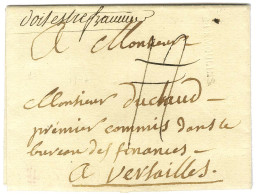 doit estre franche
A Monsieur
Monsieur duclaud
premier commis dans le
bureau des finances
A Versailles.